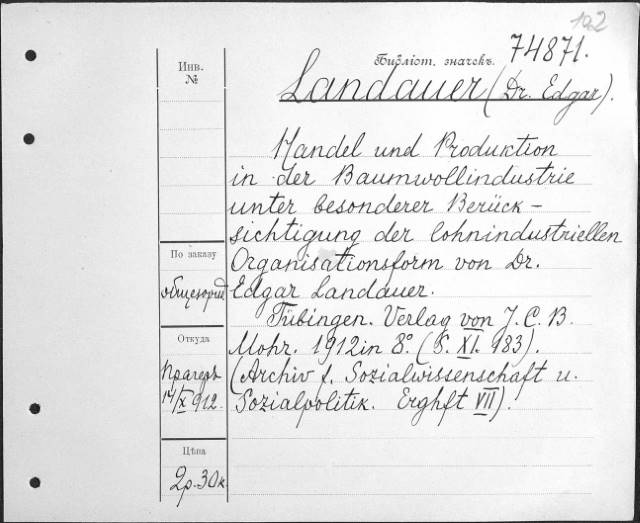 192
Библіот. значекъ. 74871.
Landauer (Dr. Edgar).
Инв.
№
Handel und Produktion
in der Baumwollindustrie
unter besonderer Berück-
sichtigung der lohnindustriellen
Organisationsform von Dr.
Edgar Landauer.
Tübingen. Verlag von J. C. B.
Mohr. 1912 in 8º. (S. XI. 183).
(Archiv f. Sozialwissenschaft u.
Sozialpolitik. Erghft VII).
По заказу
Откуда
Прагеръ
14/X 912.
Цѣна
2р.30к